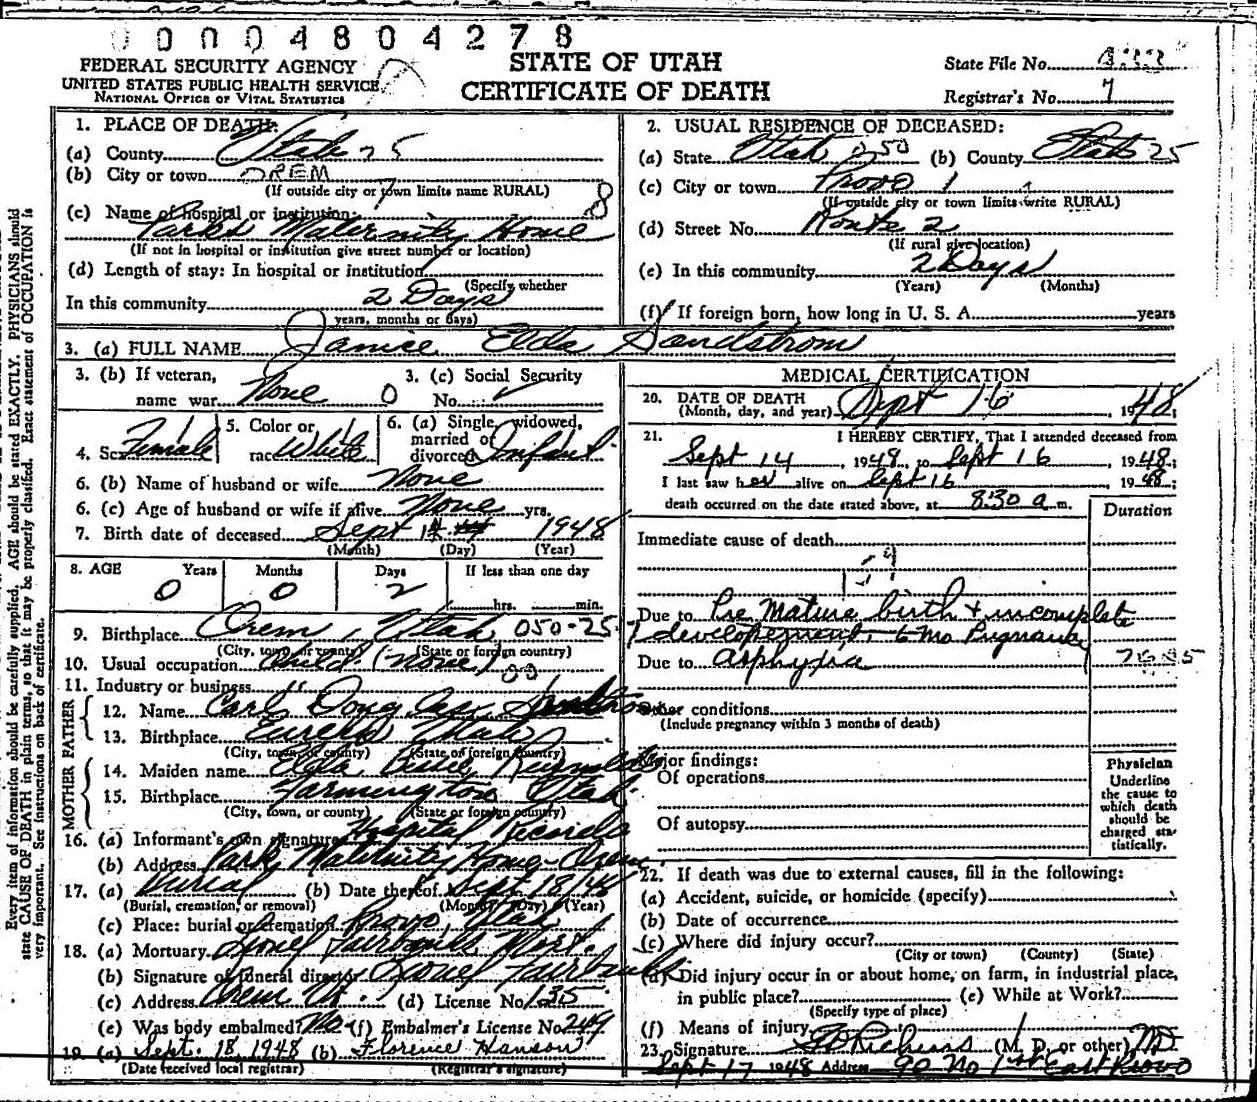 00004804278
FEDERAL SECURITY AGENCY
UNITED STATES PUBLIC HEALTH SERVICE
NATIONAL OFFICE OF VITAL STATISTICS
STATE OF UTAH
CERTIFICATE OF DEATH
State File No.
Registrar's No. 7
Every item of information should be carefully supplied. AGE should be stated EXACTLY. PHYSICIANS should
state CAUSE OF DEATH in plain terms, so that it may be properly classified. Exact statement of OCCUPATION is
very important. See instructions on back of certificate.
1. PLACE OF DEATH:
(a) County Utah 25
(b) City or town OREM
(If outside city or town limits name RURAL)
(c) Name of hospital or institution: 8
Parks Maternity Home
(If not in hospital or institution give street number or location)
(d) Length of stay: In hospital or institution
(Specify whether
In this community 2 Days
years, months or days)
2. USUAL RESIDENCE OF DECEASED:
(a) State Utah 050 (b) County Utah 25
(c) City or town Provo 1
(If outside city or town limits write RURAL)
(d) Street No. Route 2
(If rural give location)
(e) In this community 2 Days
(Years) (Months)
(f) If foreign born, how long in U. S. A. years
3. (a) FULL NAME Janice Elda Sandstrom
3. (b) If veteran, name war None 0
3. (c) Social Security No.
4. Sex Female
5. Color or race White
6. (a) Single, widowed, married or divorced Infant
6. (b) Name of husband or wife None
6. (c) Age of husband or wife if alive None yrs.
7. Birth date of deceased Sept 14 1948
(Month) (Day) (Year)
8. AGE Years Months Days If less than one day
0 0 2 hrs. min.
9. Birthplace Orem, Utah 050-25
(City, town, or county) (State or foreign country)
10. Usual occupation Child (none)
11. Industry or business "
FATHER
12. Name Carl Douglass Sandstrom
13. Birthplace Eureka Utah
(City, town, or county) (State or foreign country)
MOTHER
14. Maiden name Elda Reynolds
15. Birthplace Farmington Utah
(City, town, or county) (State or foreign country)
16. (a) Informant's own signature Hospital Records
(b) Address Park Maternity Home - Orem
17. (a) Burial (b) Date thereof Sept 18/48
(Burial, cremation, or removal) (Month) (Day) (Year)
(c) Place: burial or cremation Provo, Utah
18. (a) Mortuary Lionel Fairbanks Mort.
(b) Signature of funeral director Lionel Fairbanks
(c) Address Orem Ut. (d) License No. 135
(e) Was body embalmed? No (f) Embalmer's License No. 249
19. (a) Sept. 18, 1948 (b) Florence Hanson
(Date received local registrar) (Registrar's signature)
MEDICAL CERTIFICATION
20. DATE OF DEATH
(Month, day, and year) Sept 16, 1948;
21. I HEREBY CERTIFY, That I attended deceased from
Sept 14, 1948, to Sept 16, 1948;
I last saw her alive on Sept 16, 1948;
death occurred on the date stated above, at 8:30 a m.
Duration
Immediate cause of death
Due to Pre Mature birth + incomplete
developement, 6 mo Pregnancy
Due to asphyxia
Other conditions
(Include pregnancy within 3 months of death)
Major findings:
Of operations
Of autopsy
Physician
Underline
the cause to
which death
should be
charged sta-
tistically.
22. If death was due to external causes, fill in the following:
(a) Accident, suicide, or homicide (specify)
(b) Date of occurrence
(c) Where did injury occur?
(City or town) (County) (State)
(d) Did injury occur in or about home, on farm, in industrial place,
in public place? (e) While at Work?
(Specify type of place)
(f) Means of injury
23. Signature Richins (M. D. or other) MD
Sept 17 1948 Address 90 No 1st East Provo